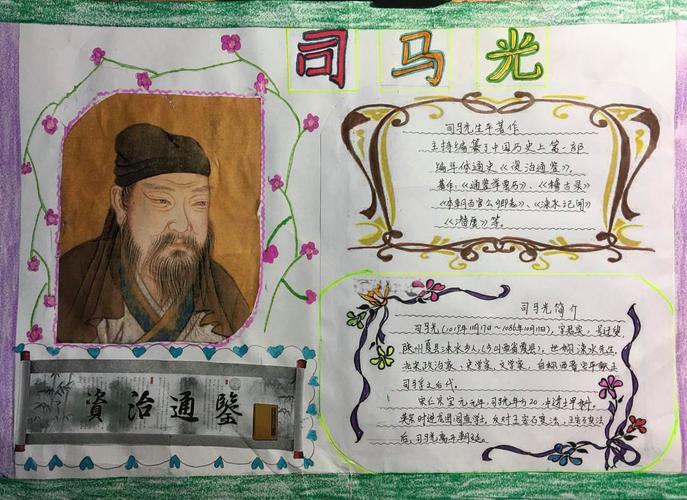 司马光
司马光生平著作
主持编纂了中国历史上第一部
编年体通史《资治通鉴》。
著作:《通鉴举要历》、《稽古录》
《本朝百官公卿表》、《涑水记闻》
《潜虚》等。
資治通鑒
司马光简介
司马光(1019年11月17日~1086年10月11日),字君实,号迂叟,
陕州夏县涑水乡人(今山西省夏县),世称涑水先生,
北宋政治家、史学家、文学家,自称西晋安平献王
司马孚之后代。
宋仁宗宝元元年,司马光年方20,中进士甲科,
英宗时进龙图阁直学士,反对王安石变法,王安石变法
后,司马光离开朝廷。